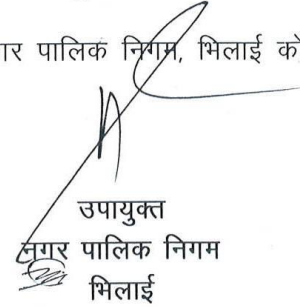 पालिक निगम, भिलाई
उपायुक्त
नगर पालिक निगम
भिलाई